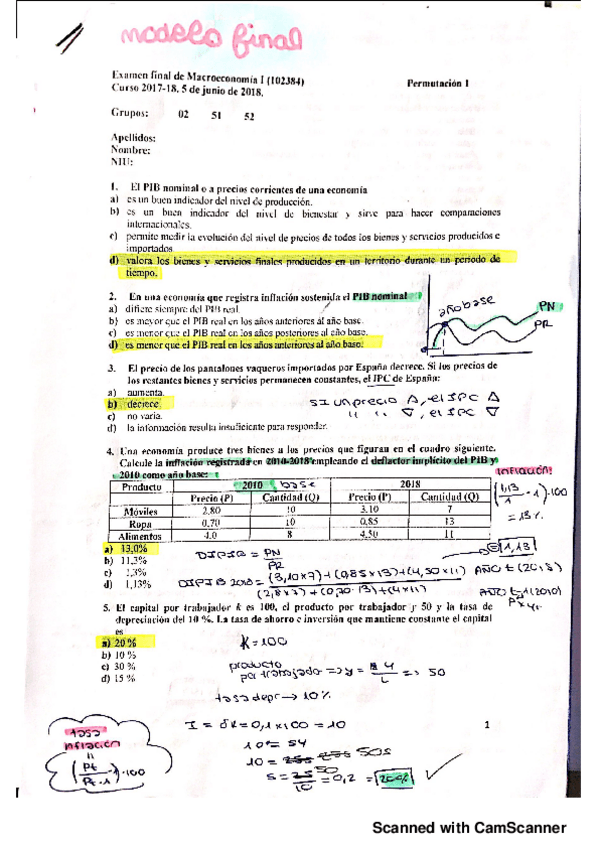 modelo final
Examen final de Macroeconomía I (102384)
Curso 2017-18, 5 de junio de 2018.
Permutación 1
Grupos: 02 51 52
Apellidos:
Nombre:
NIU:
1. El PIB nominal o a precios corrientes de una economía
a) es un buen indicador del nivel de producción.
b) es un buen indicador del nivel de bienestar y sirve para hacer comparaciones
internacionales.
c) permite medir la evolución del nivel de precios de todos los bienes y servicios producidos e
importados.
d) valora los bienes y servicios finales producidos en un territorio durante un periodo de
tiempo.
2. En una economía que registra inflación sostenida el PIB nominal
a) difiere siempre del PIB real.
b) es mayor que el PIB real en los años anteriores al año base.
c) es menor que el PIB real en los años posteriores al año base.
d) es menor que el PIB real en los años anteriores al año base.
año base
PN
PR
3. El precio de los pantalones vaqueros importados por España decrece. Si los precios de
los restantes bienes y servicios permanecen constantes, el IPC de España:
a) aumenta.
b) decrece.
c) no varía.
d) la información resulta insuficiente para responder.
SI un precio Δ, el IPC Δ
" " ∇, el IPC ∇
4. Una economía produce tres bienes a los precios que figuran en el cuadro siguiente.
Calcule la inflación registrada en 2010-2018 empleando el deflactor implícito del PIB y
2010 como año base:
Inflación:
Producto 2010 base 2018
Precio (P) Cantidad (Q) Precio (P) Cantidad (Q)
Móviles 2,80 10 3,10 7
Ropa 0,70 10 0,85 13
Alimentos 4,0 8 4,50 11
(1,13/1 - 1)·100
= 13%
a) 13,0%
b) 11,3%
c) 1,3%
d) 1,13%
DIPIB = PN/PR
DIPIB 2018 = (3,10x7)+(0,85x13)+(4,50x11)
(2,8x7)+(0,70·13)+(4x11)
= 1,13
AÑO t (2018)
AÑO t-1 (2010)
5. El capital por trabajador k es 100, el producto por trabajador y 50 y la tasa de
depreciación del 10 %. La tasa de ahorro e inversión que mantiene constante el capital
es
a) 20 %
b) 10 %
c) 30 %
d) 15 %
K = 100
producto
por trabajador => y = Y/L => 50
tasa depr → 10%
I = δK = 0,1 x 100 = 10
10 = sy
10 = 50s
= 0,2 = 20%
1
tasa
inflación
=
(Pt/Pt-1 - 1)·100
Scanned with CamScanner